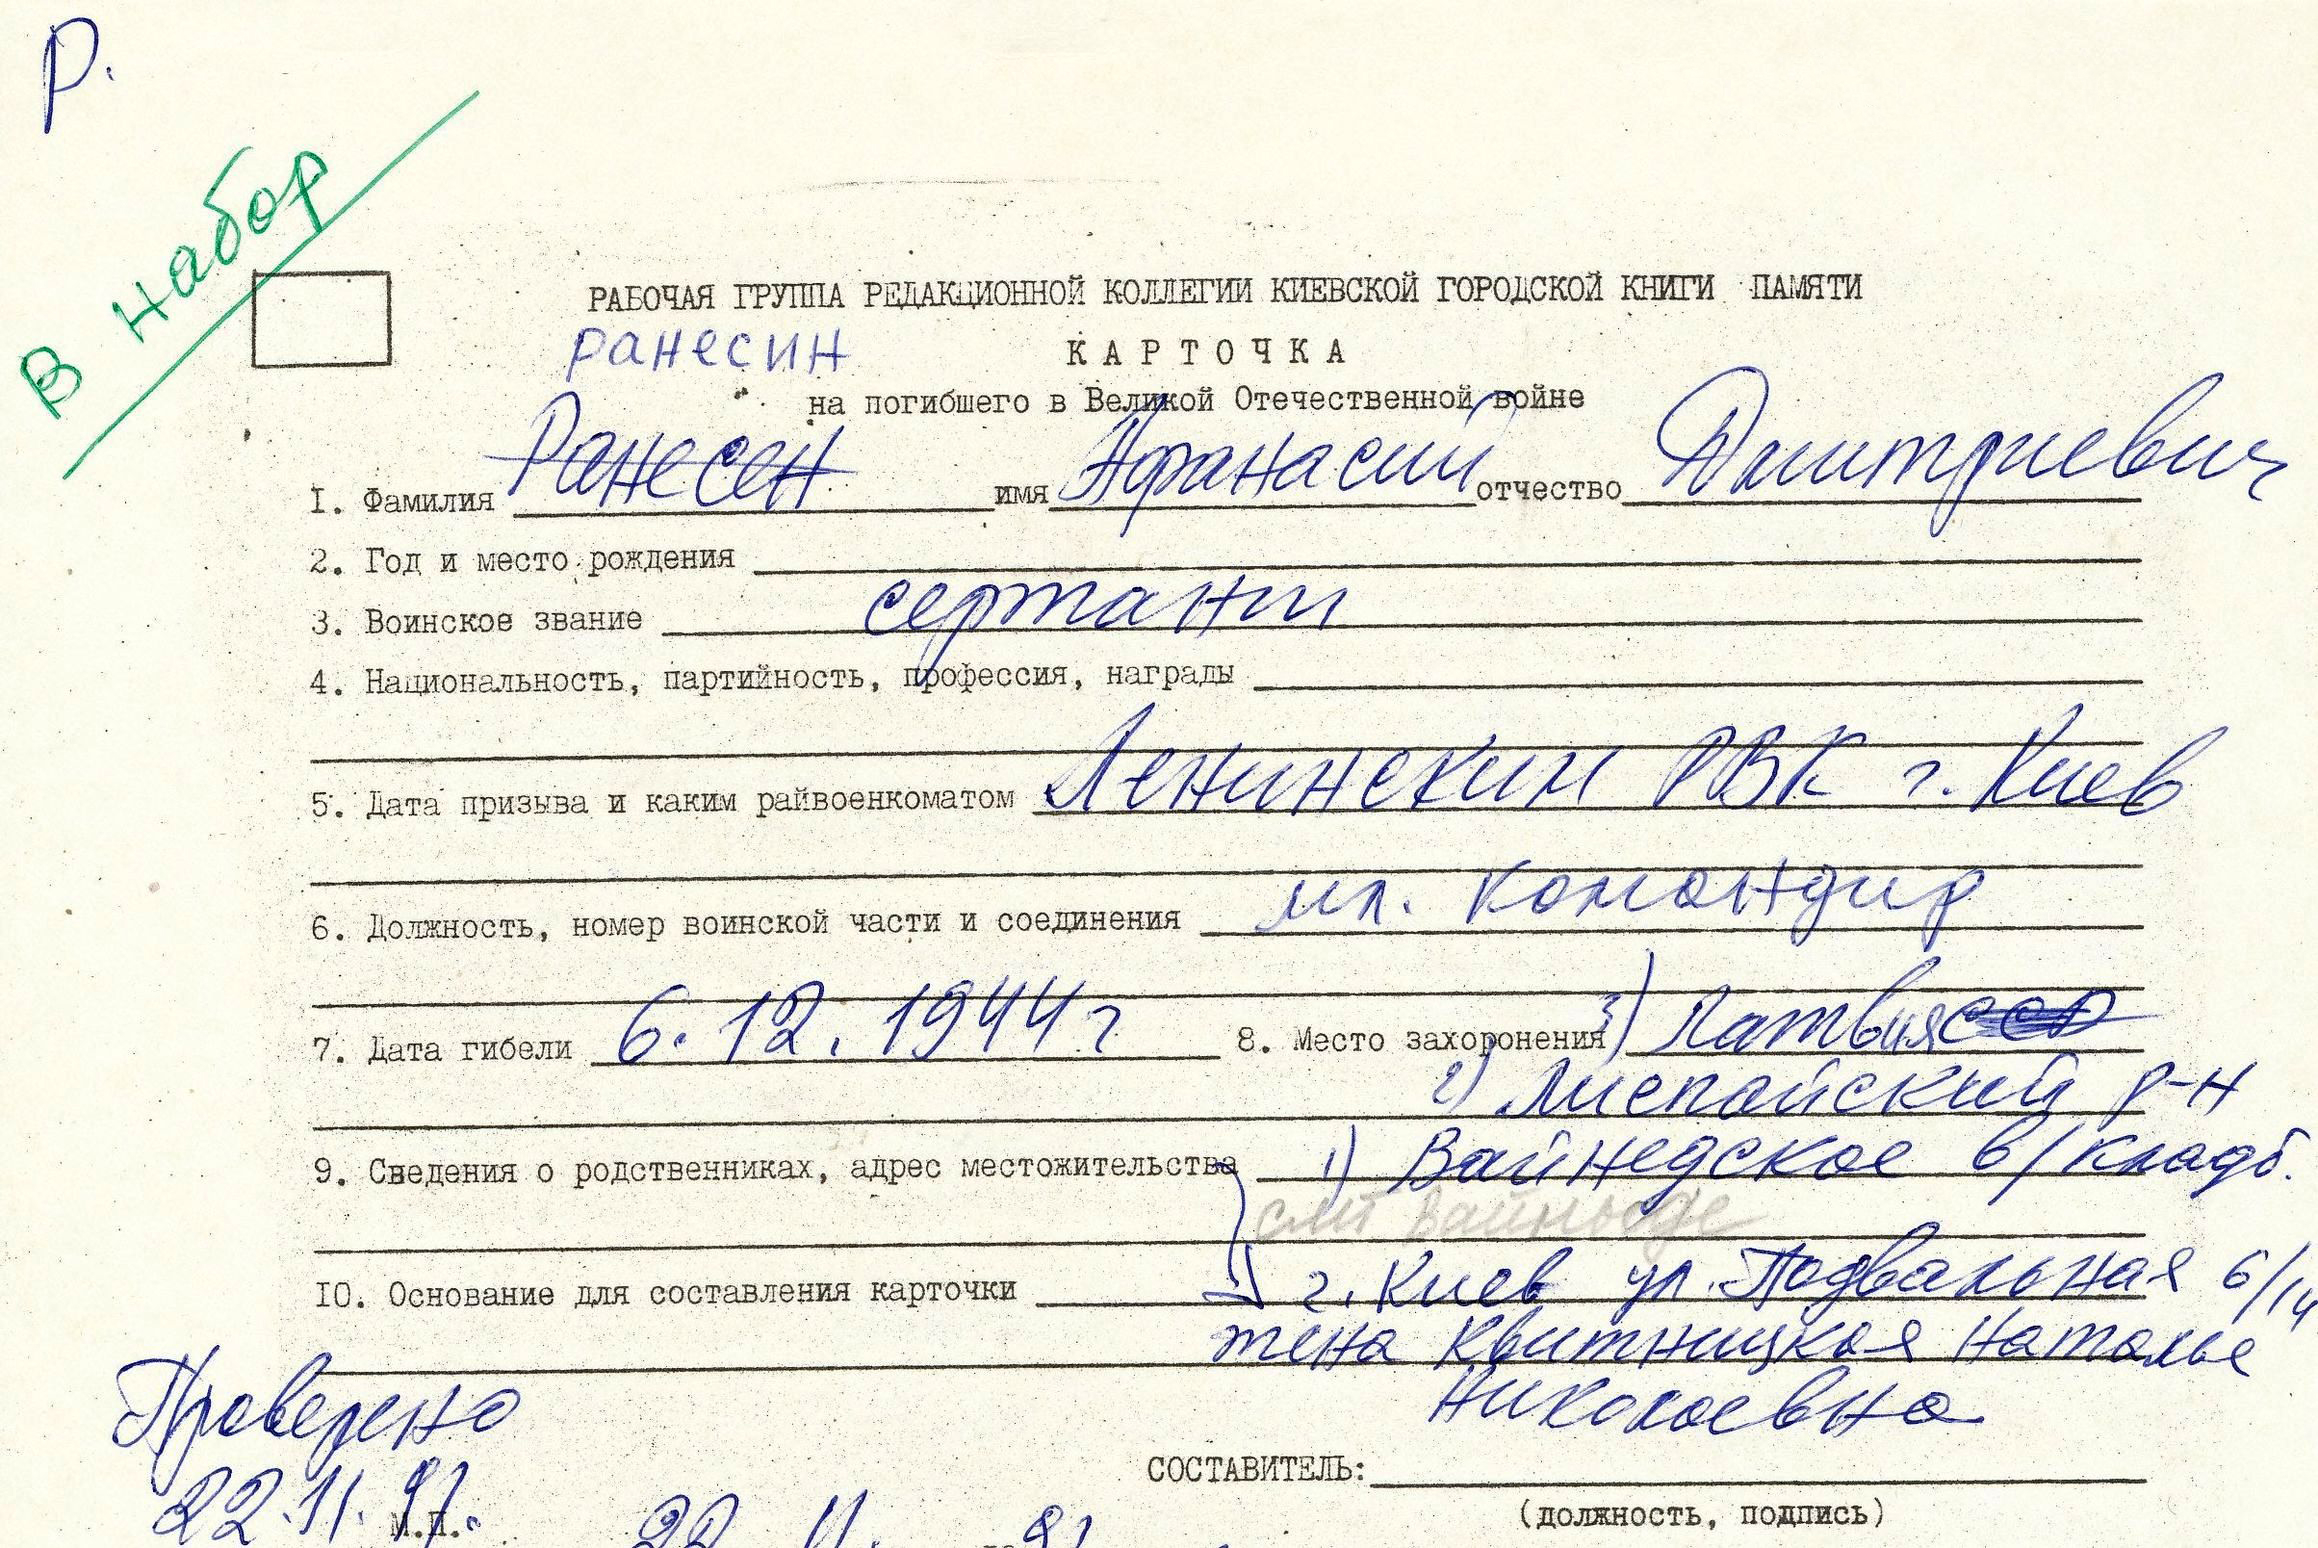 Р.
В набор
РАБОЧАЯ ГРУППА РЕДАКЦИОННОЙ КОЛЛЕГИИ КИЕВСКОЙ ГОРОДСКОЙ КНИГИ ПАМЯТИ
Ранесин КАРТОЧКА
на погибшего в Великой Отечественной войне
1. Фамилия Ранесен имя Афанасий отчество Дмитриевич
2. Год и место рождения
3. Воинское звание сержант
4. Национальность, партийность, профессия, награды
5. Дата призыва и каким райвоенкоматом Ленинским РВК г. Киев
6. Должность, номер воинской части и соединения мл. командир
7. Дата гибели 6.12.1944 г 8. Место захоронения 3) Латвия
2) Лиепайский р-н
9. Сведения о родственниках, адрес местожительства 1) Вайнедское в/кладб.
смт Вайньоде
10. Основание для составления карточки г. Киев ул. Подвальная 6/14
жена Квитницкая Наталье
Николаевна
Проверено
22.11.91.
СОСТАВИТЕЛЬ:
(должность, подпись)
М.П.
22 11 91